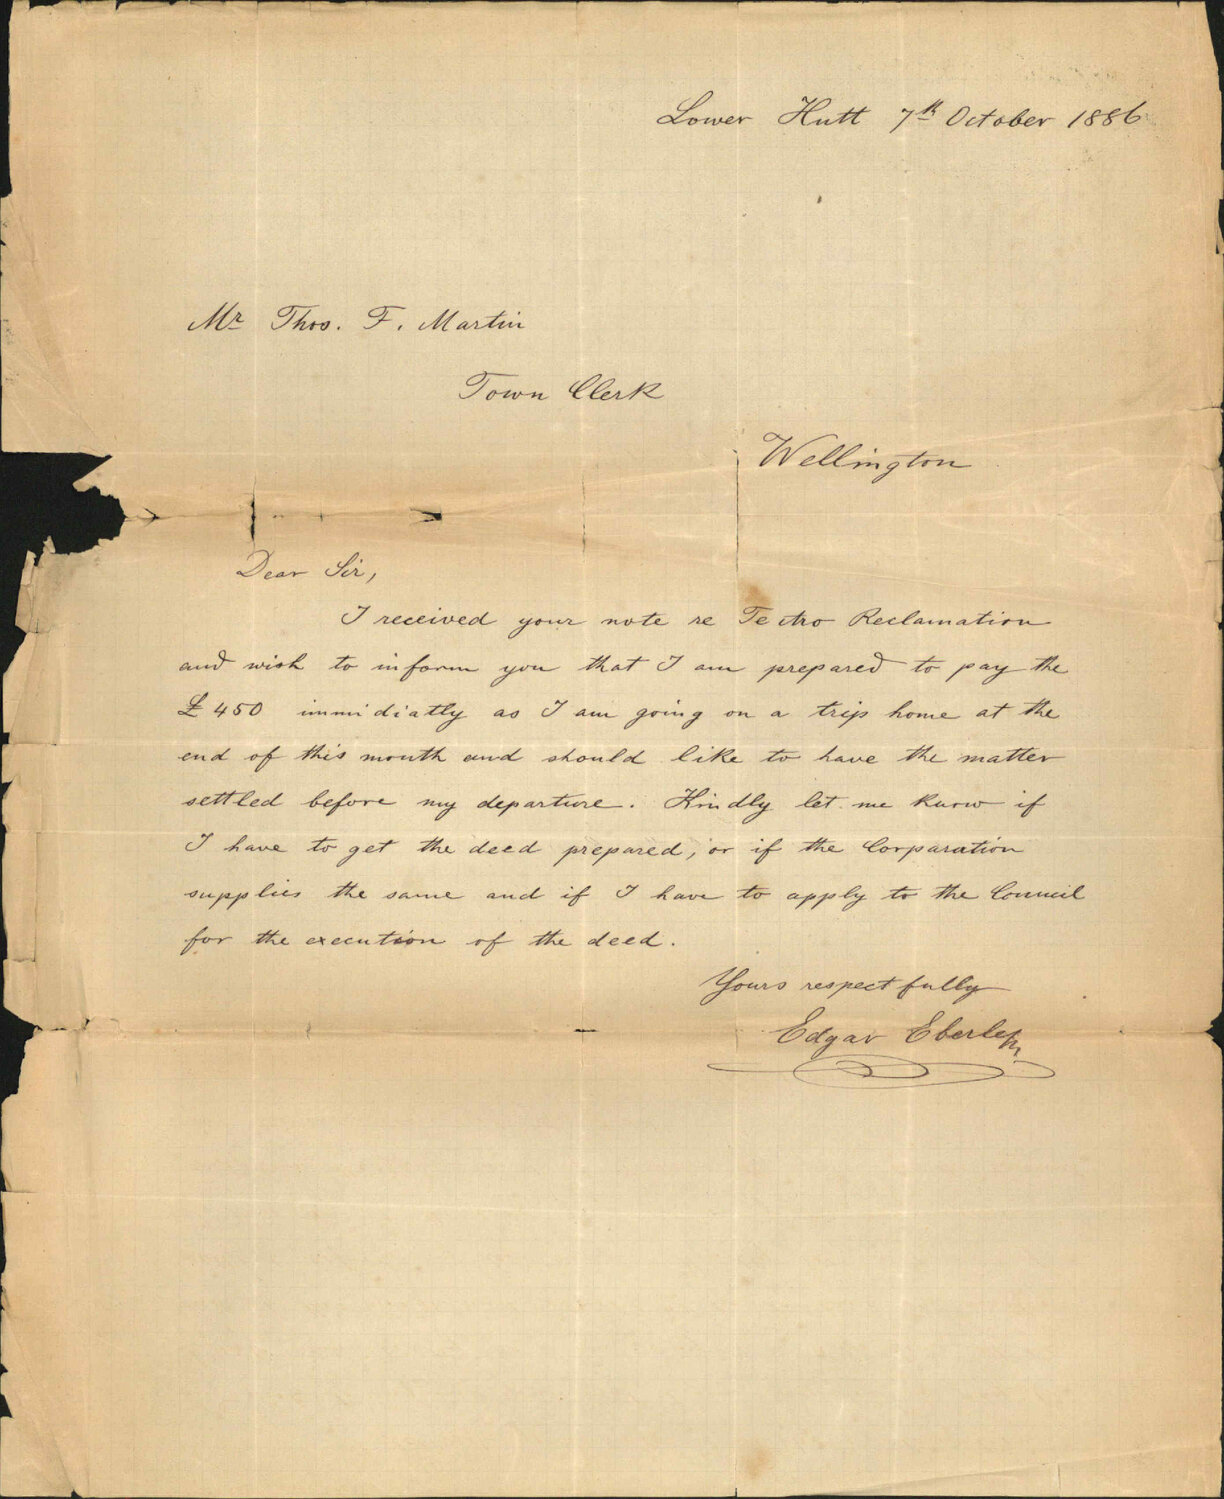 Lower Hutt 7th October 1886
Mr Thos. F. Martin
Town Clerk
Wellington
Dear Sir,
I received your note re Te Aro Reclamation
and wish to inform you that I am prepared to pay the
£450 immidiatly as I am going on a trip home at the
end of this month and should like to have the matter
settled before my departure. Kindly let me know if
I have to get the deed prepared, or if the Corparation
supplies the same and if I have to apply to the Council
for the execution of the deed.
Yours respectfully
Edgar